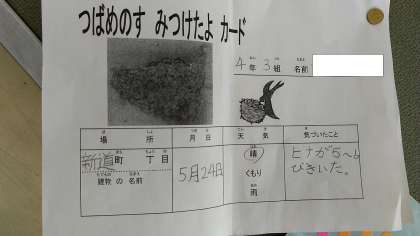 つばめのす みつけたよ カード
4年 3組 名前
場所 月日 天気 気づいたこと
新道町 丁目 5月24日 晴 ヒナが5〜6
建物の名前 くもり ぴきいた。
雨